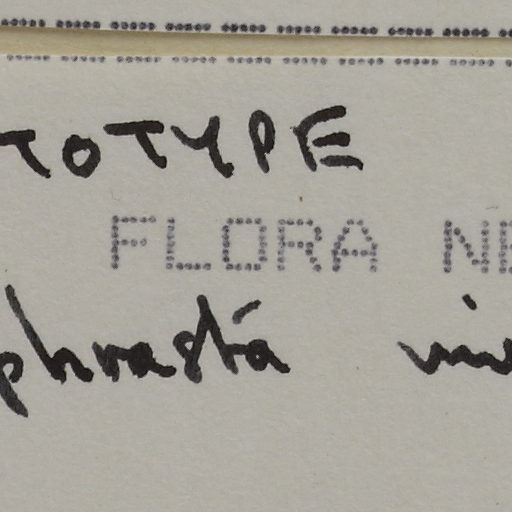 TOTYPE
FLORA NE
phrasta viv